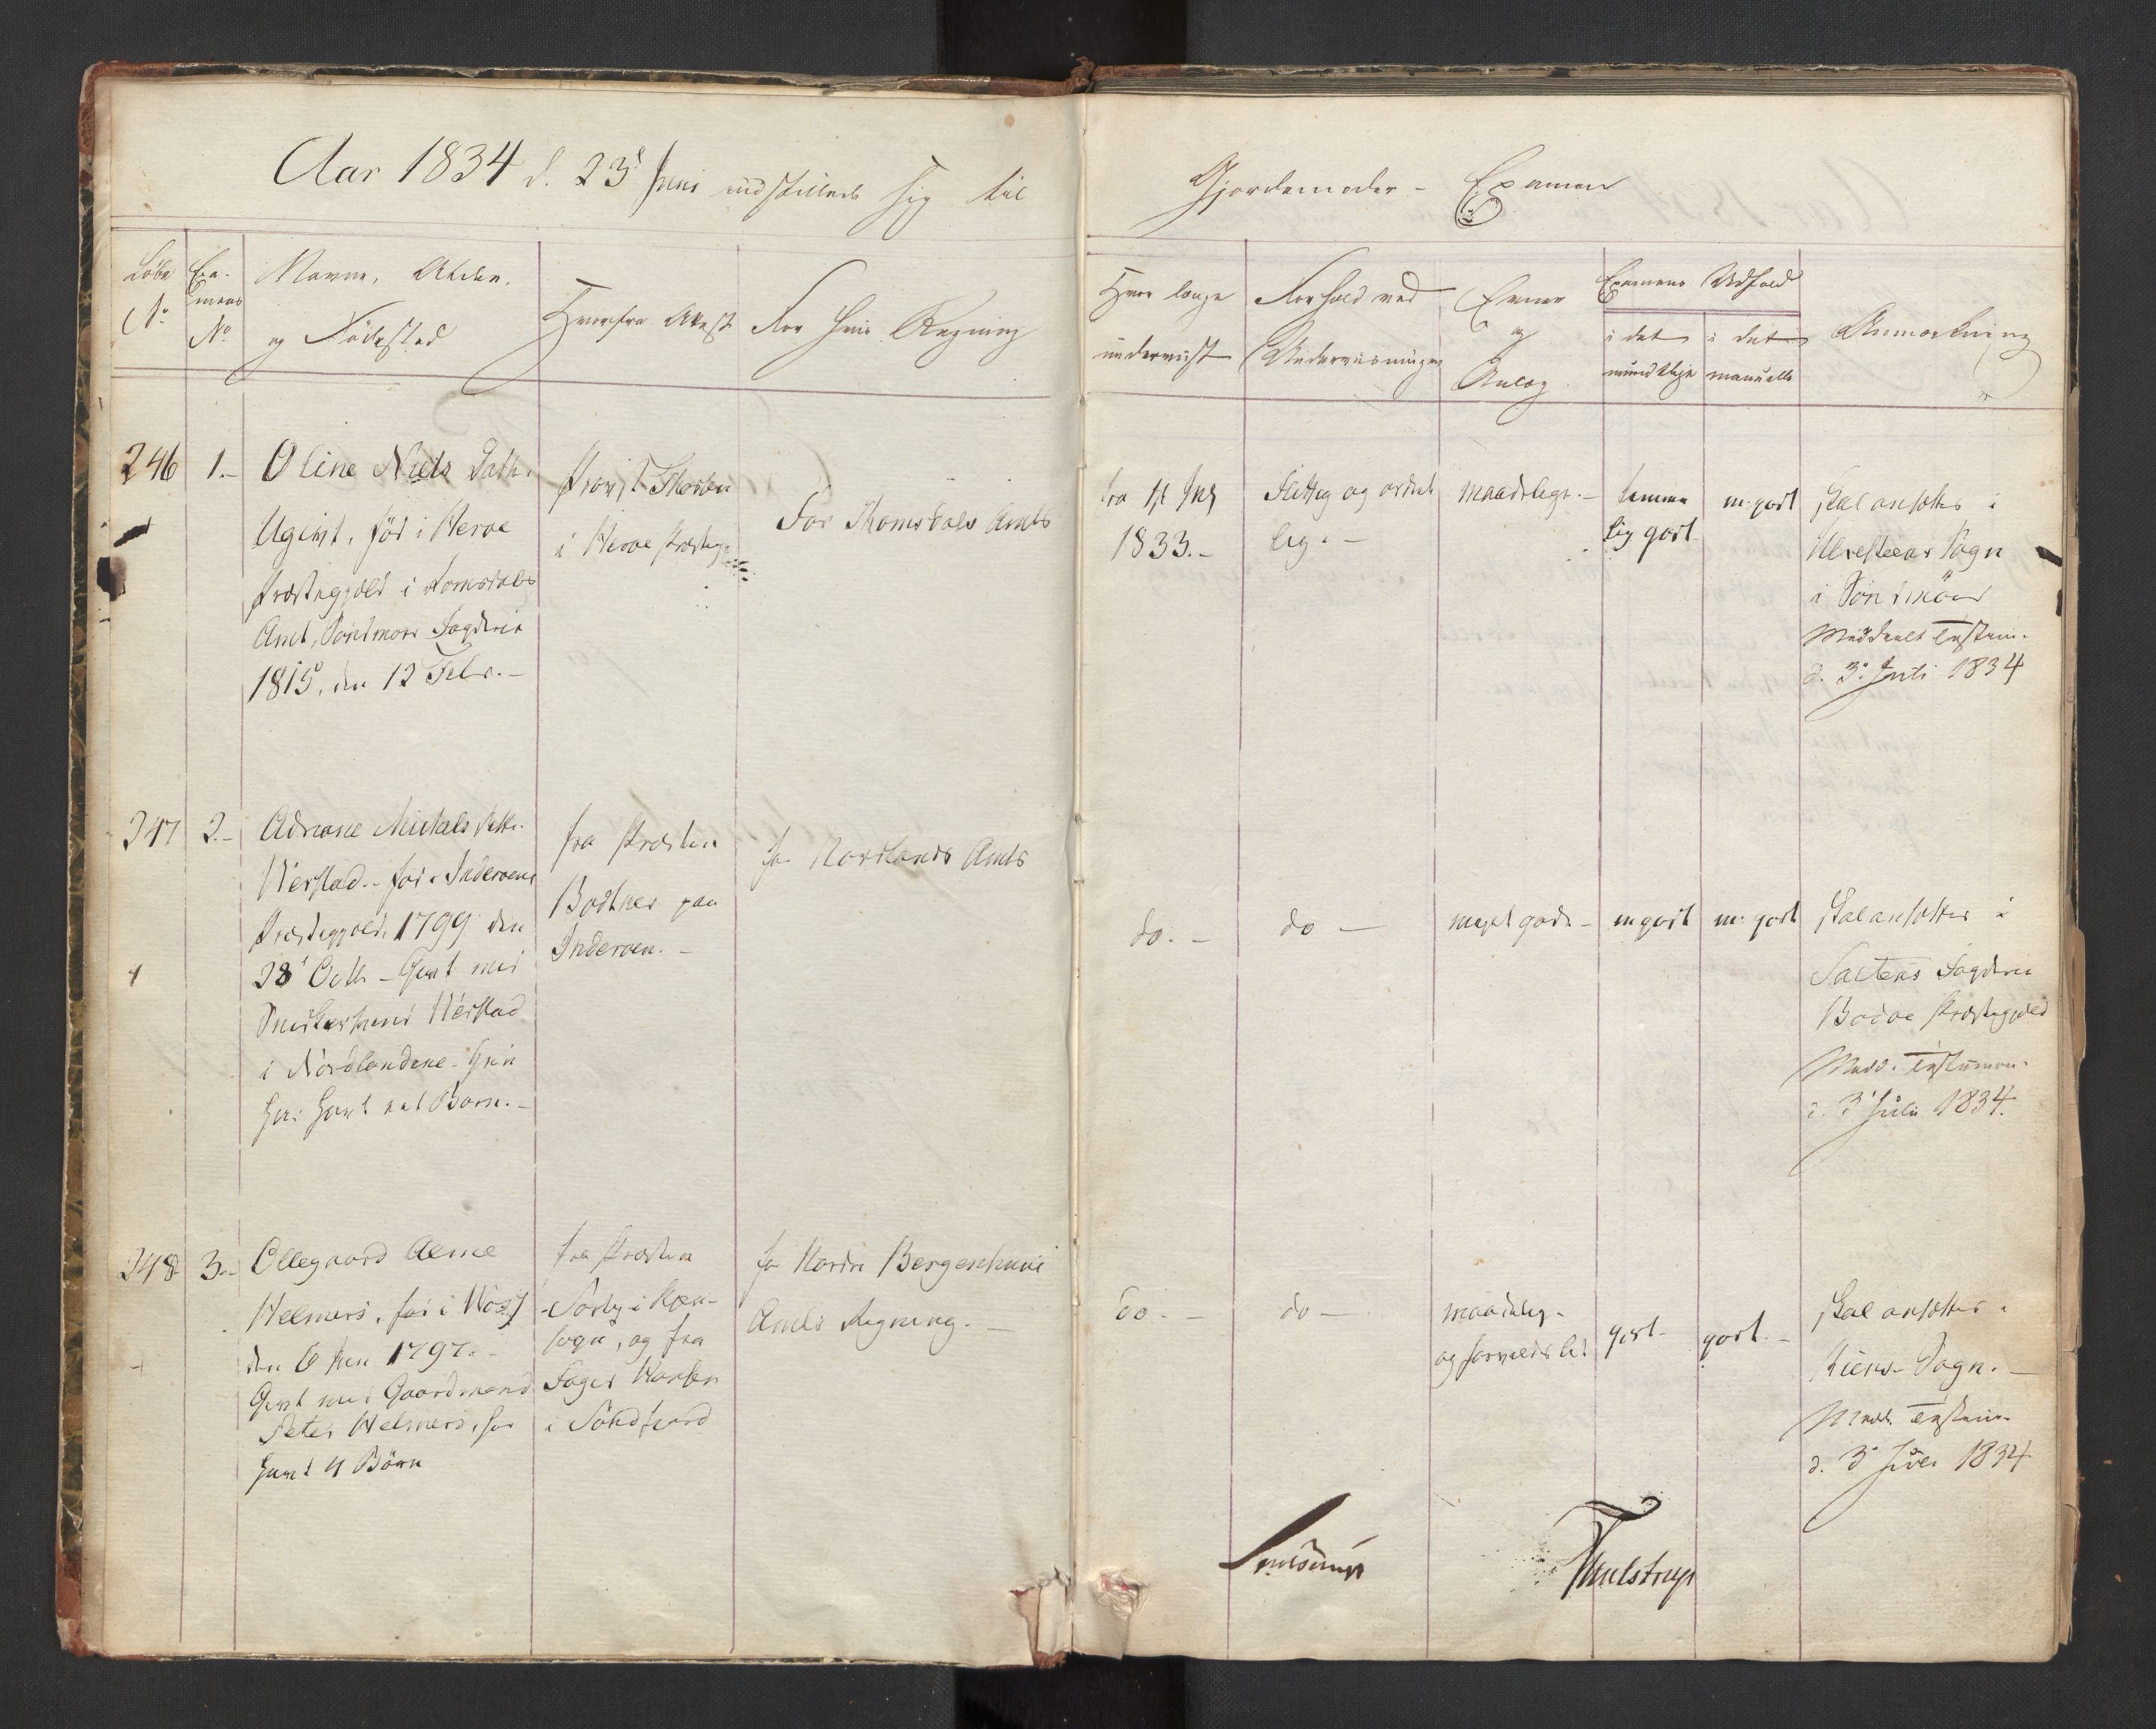 Aar 1834 d. 23d Juni indstillede sig til
Gjordemoder-Examen
Löbe No
Examens No
Navne, Alder,
og Födested
Hvorfra Attest
For hvis Regning
Hvor længe
underviist
Forhold ved
Underviisningen
Evner
og
Anlæg
Examens Udfald
i det
mundtlige
i det
manuelle
Anmærkning
246
1.-
Oline Niels Datt.
Ugivt, föd i Heroe
Præstegjæld i Romsdals
Amt, Söndmörs Fogderie
1815, den 12 Febr.-
Provst
i Heroe Præsteg.
For Romsdals Amts
fra
1833.-
Flittig og ordent
lig.-
maadelige.-
temme
lig godt
m: godt
skal ansættes i
Ulvsteens Sogn
i Söndmör
Meddeelt Testim.
d. 3. Juli 1834
247
2.-
Adriane Michels Datt.
Werstad.- föd i Inderoens
Præstegjeld, 1799 den
28' Octb - Givt med
Werstad
i Nordlandene -
har havt et Barn.-
fra Præsten
paa
Inderoen.-
for Nordlands Amts
do.-
do -
meget gode -
m godt
m: godt
skal ansættes i
Saltens Fogderie
Bodoe Præstegjeld
Medd. Testimon.
d. 3' Julii 1834.
248
3.-
Ollegaard
Helmers, föd i
den 6 Jan 1797.-
Givt med Gaardmand
Peter Helmers, har
havt 4 Börn
fra Præsten
sogn, og fra
Foged
i Söndfiord
for Nordre Bergenhuus
Amts Regning.-
do.-
do -
maadelig.
og
godt -
godt.-
skal ansættes i
Kiens Sogn.-
Medd. Testim.
d. 3' Juli 1834
Thulstrup